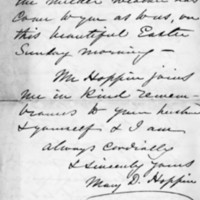 the milder weather has
come to you as to us, on
this beautiful Easter
Sunday morning —
Mr Hoppin joins
me in kind remem-
brances to your husband
& yourself & I am
always cordially
& sincerely yours
Mary D. Hoppin